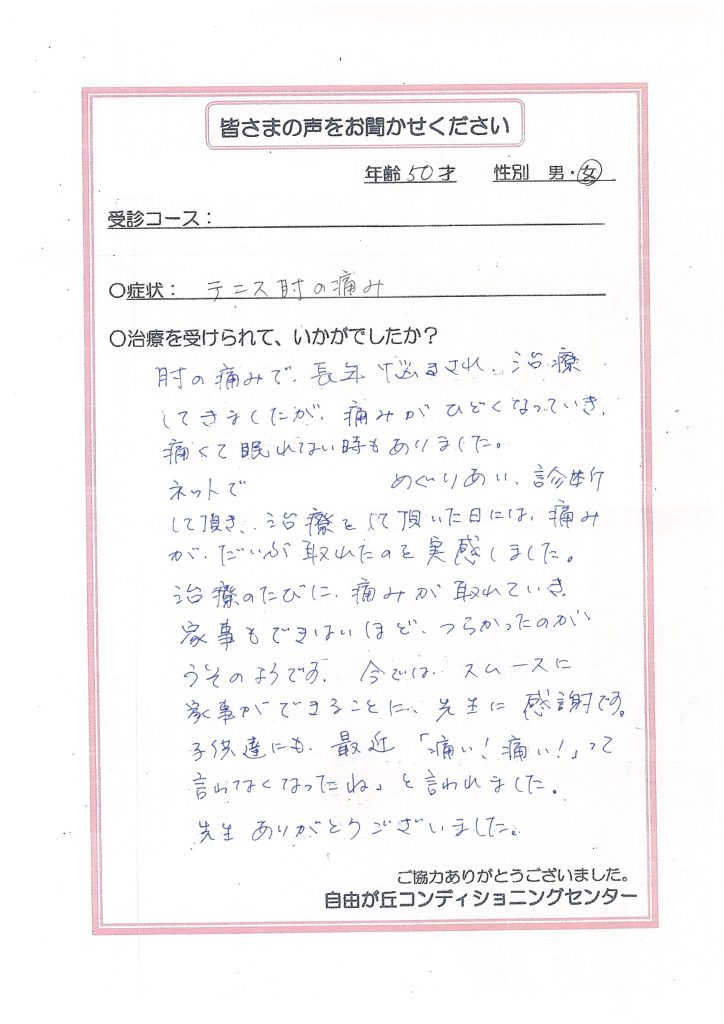 皆さまの声をお聞かせください
年齢 50才 性別 男・女
受診コース：
〇症状： テニス肘の痛み
〇治療を受けられて、いかがでしたか？
肘の痛みで、長年悩まされ、治療
してきましたが、痛みがひどくなっていき、
痛くて眠れない時もありました。
ネットで めぐりあい、診断
して頂き、治療をして頂いた日には、痛み
が、だいぶ取れたのを実感しました。
治療のたびに、痛みが取れていき
家事もできないほど、つらかったのが、
うそのようです。今では、スムースに
家事ができることに、先生に感謝です。
子供達にも、最近「痛い！痛い！」って
言わなくなったね」と言われました。
先生ありがとうございました。
ご協力ありがとうございました。
自由が丘コンディショニングセンター